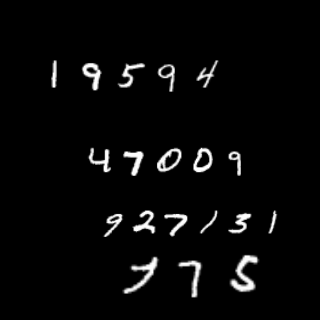 19594
47009
927131
775